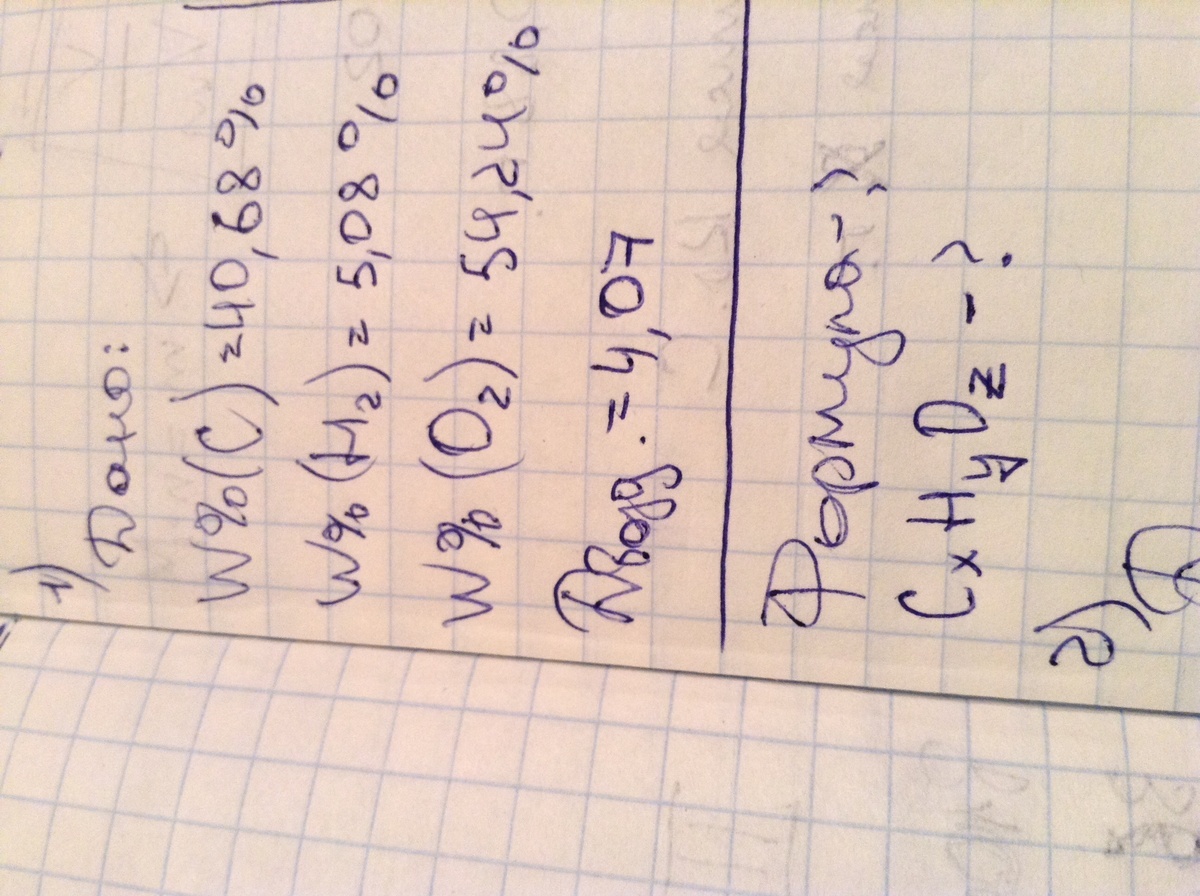 1)
Дано:
W%(C)=40,68%
W%(H2)=5,08%
W%(O2)=54,24%
Dвод.=4,07
Формула-?
CxHyOz-?
2)